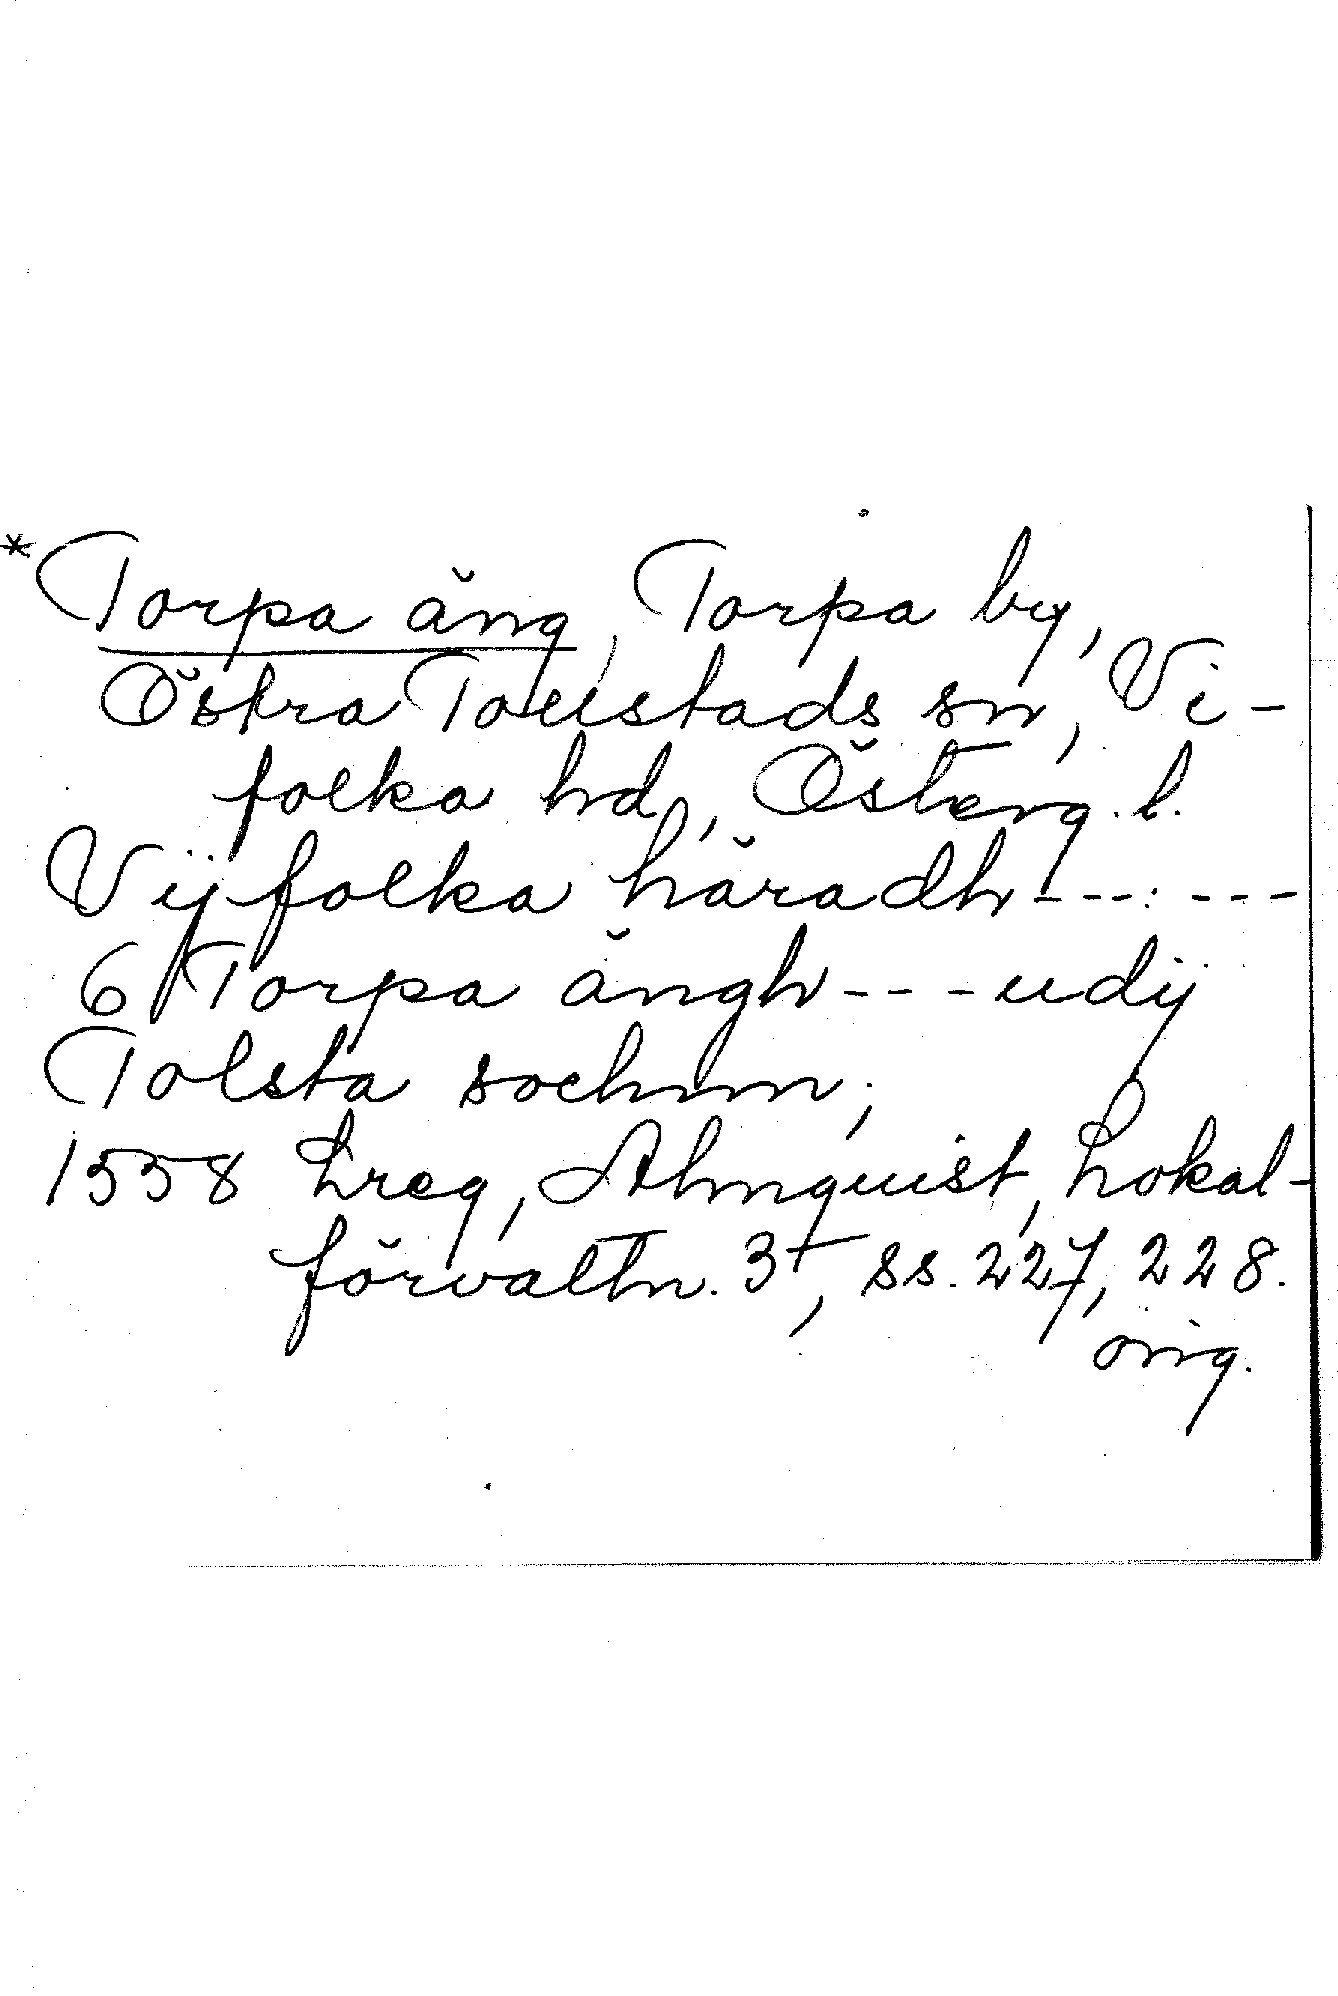 *Torpa äng, Torpa by,
Östra Tollstads sn, Vi-
folka hd, Österg. l.
Vijfolka häradh - - - - - -
6 Torpa ängh - - - udij
Tolsta sochnn;
1558 Lreg, Almquist, Lokal-
förvaltn. 3†, ss. 227, 228.
orig.